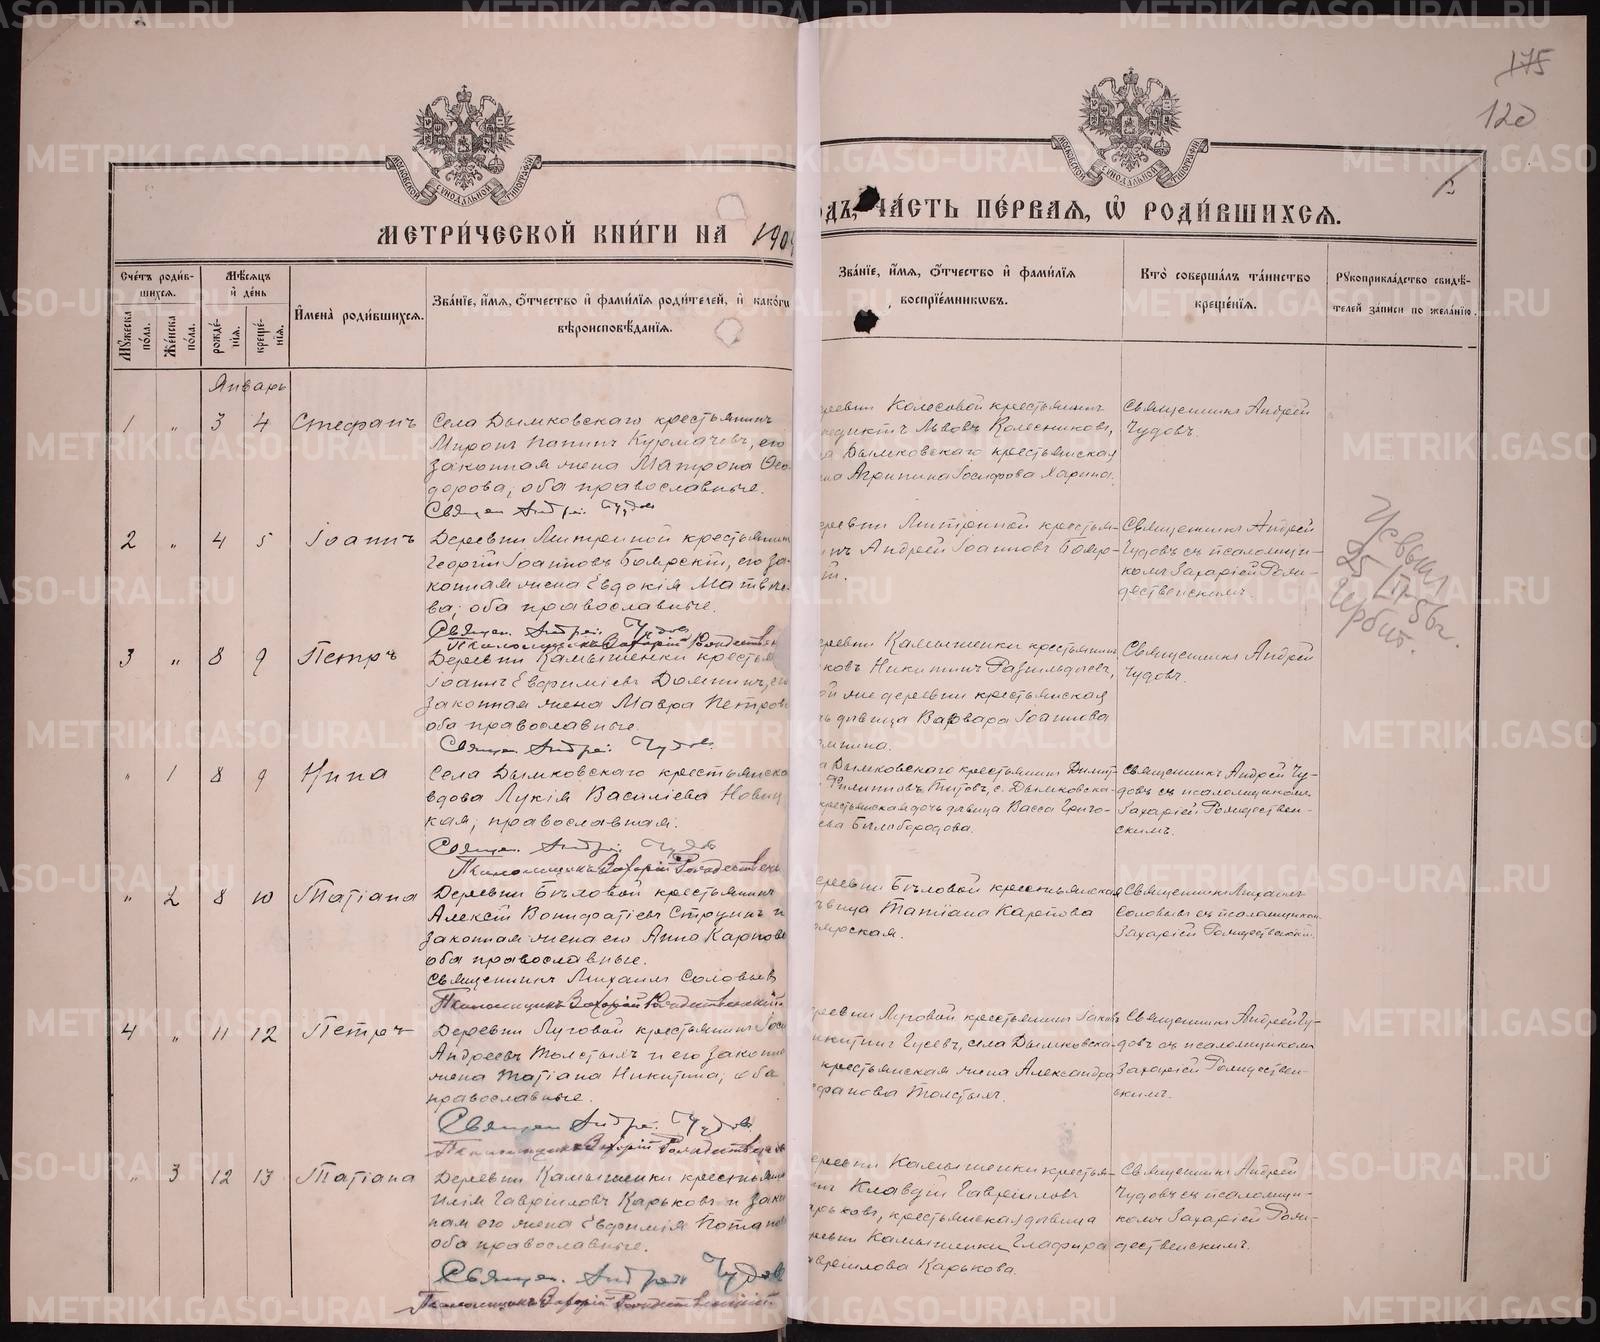 175
120
МОСКОВСКОЙ СѴНОДАЛЬНОЙ ТИПОГРАФІИ
МОСКОВСКОЙ СѴНОДАЛЬНОЙ ТИПОГРАФІИ
МЕТРИ́ЧЕСКОЙ КНИ́ГИ НА 190
ОДЪ, ЧА́СТЬ ПЕ́РВАЯ, Ѽ РОДИ́ВШИХСЯ.
Сче́тъ роди́в-
шихся.
Мѣ́сяцъ
и҆ де́нь
Мꙋ́жеска по́ла.
Же́нска по́ла.
рожде́-нія.
креще́-нія.
И҆мена̀ роди́вшихся.
Зва́ніе, и҆́мя, ѻ҆́тчество и҆ фами́лія роди́телей, и҆ како́гѡ
вѣроисповѣ́данія.
Зва́ніе, и҆́мя, ѻ҆́тчество и҆ фами́лія
воспріе́мникѡвъ.
Кто̀ соверша́лъ та́инство
креще́нія.
Рꙋкоприкла́дство свидѣ́-
телей за́писи по жела́нію.
Январь
1 " 3 4 Стефанъ
Села Дымковскаго крестьянинъ
Миронъ Курмачевъ, его
законная жена Матрона Ѳео
дорова, оба православные.
Священ. Андрей Чудов
ревни Колесовой крестьянинъ
Львовъ Колесниковъ,
а Дымковскаго крестьянская
на Агрипина Іосифова Ларина.
Священникъ Андрей
Чудовъ.
2 " 4 5 Іоаннъ
Деревни крестьянин
Георгій Іоанновъ Боярскій, его за
конная жена Евдокія Матвѣе
ва; оба православные.
Священ. Андрей Чудов
Псаломщикъ Захарій Рождествен
ревни крестьян-
инъ Андрей Іоанновъ Бояр-
Священникъ Андрей
Чудовъ съ псаломщи-
комъ Захаріей Рож-
дественскимъ.
3 " 8 9 Петръ
Деревни Камышенки крестья
Іоаннъ Евфиміевъ его
законная жена Мавра Петров
оба православные.
Священ. Андрей Чудов
ревни Камышенки крестьянинъ
ковъ Никитинъ
ой же деревни крестьянская
чь дѣвица Варвара Іоаннова
Священникъ Андрей
Чудовъ.
" 1 8 9 Нина
Села Дымковскаго крестьянска
вдова Лукія Василіева Новиц
кая, православная.
Священ. Андрей Чудов
Псаломщикъ Захарій Рождественс
а Дымковскаго крестьянинъ Димит
Филипповъ Титовъ, с. Дымковска
крестьянская дочь дѣвица Васса Григо-
ева Бѣлобородова.
Священникъ Андрей Чу-
довъ съ псаломщикомъ
Захаріей Рождествен-
скимъ.
" 2 8 10 Татіана
Деревни Бѣловой крестьянинъ
Алексій Вонифатіевъ Струнинъ и
законная жена его Анна Карпова
оба православные.
Священникъ Михаилъ Соловьев
Псаломщикъ Захарій Рождественскій
ревни Бѣловой крестьянская
вица Татіана Карпова
ярская.
Священникъ Михаилъ
Соловьевъ съ псаломщиком
Захаріей Рождественски.
4 " 11 12 Петръ
Деревни Луговой крестьянинъ Іоси
Андреевъ Толстыхъ и его законна
жена Татіана Никитина; оба
православные.
Священ. Андрей Чудов
Псаломщикъ Захарій Рождественс
ревни Луговой крестьянинъ Іаков
икитинъ Гусевъ, села Дымковска
крестьянская жена Александра
Толстыхъ.
Священникъ Андрей Чу-
довъ съ псаломщикомъ
Захаріей Рождествен-
скимъ.
" 3 12 13 Татіана
Деревни Камышенки крестьяни
Илія Гавріиловъ Карьковъ и закон
ная его жена Евфимія Потапов
оба православные.
Священ. Андрей Чудов
Псаломщикъ Захарій Рождественскій
ревни Камышенки крестья-
инъ Клавдій Гавріиловъ
арьковъ, крестьянская дѣвица
ревни Камышенки Глафира
авріилова Карькова.
Священникъ Андрей
Чудовъ съ псаломщи-
комъ Захаріей Рож-
дественскимъ.
25/IV-56г.
Ирбит.
METRIKI.GASO-URAL.RU